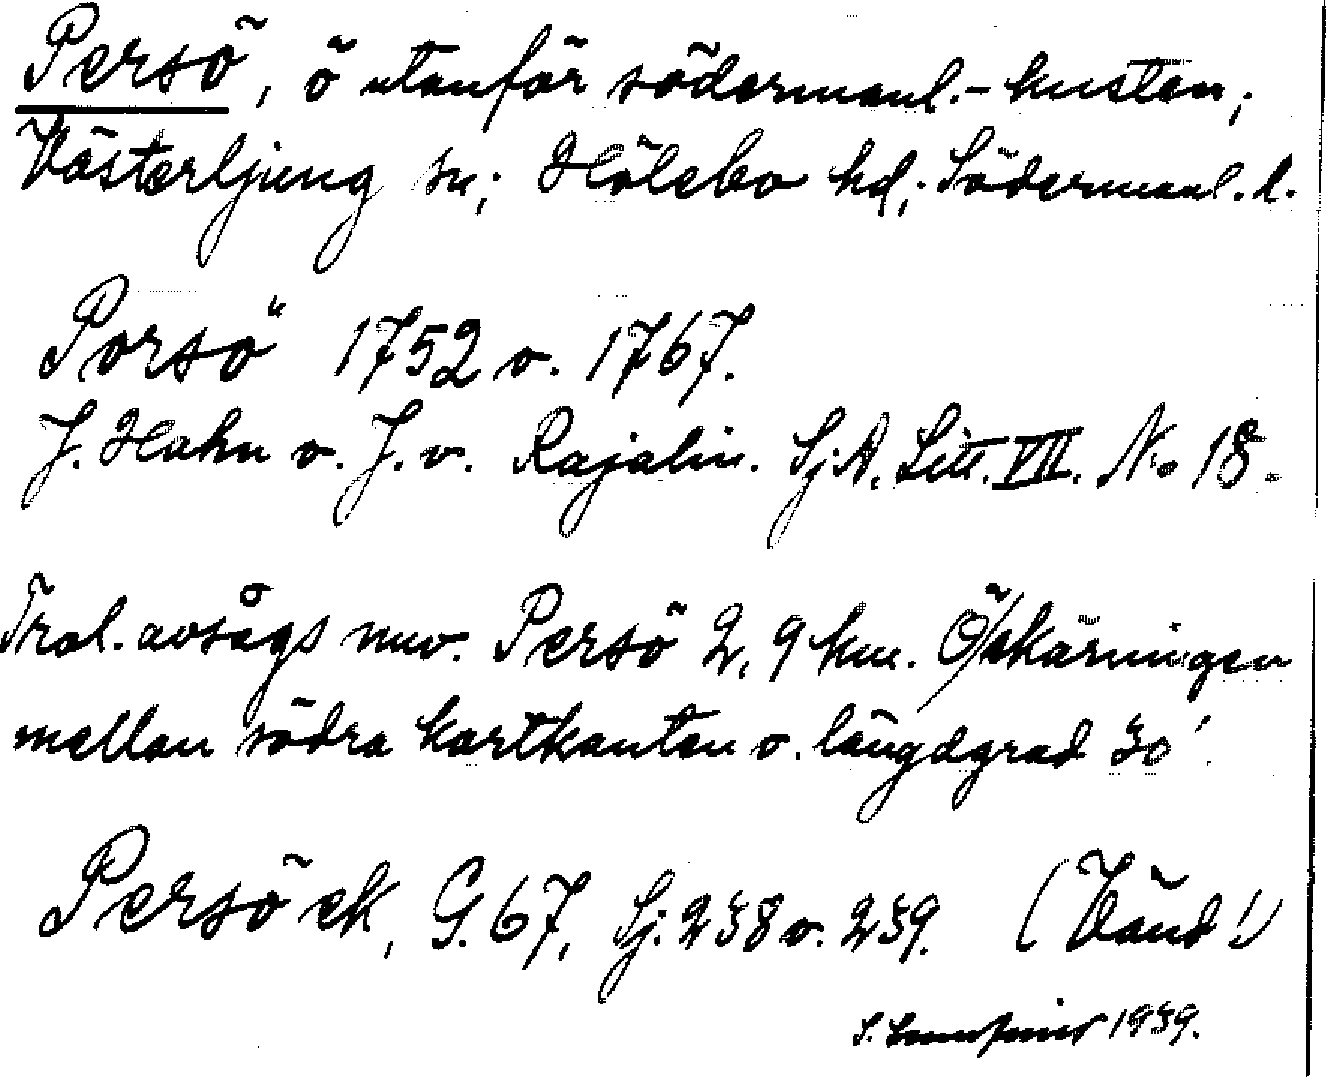 Persö, ö utanför södermanl.-kusten;
Västerljung sn; Hölebo hd; Södermanl. l.
Porsö 1752 o. 1767.
J. Hahn o. J. v. Rajalin. Sj.A. Litt. VII. No 18.
Trol. avsågs nuv. Persö 2,9 km. Ö/skärningen
mellan södra kartkanten o. längdgrad 30'.
Persö ek, G. 67, Sj. 238 o. 239. (Vänd!)
S. 1939.